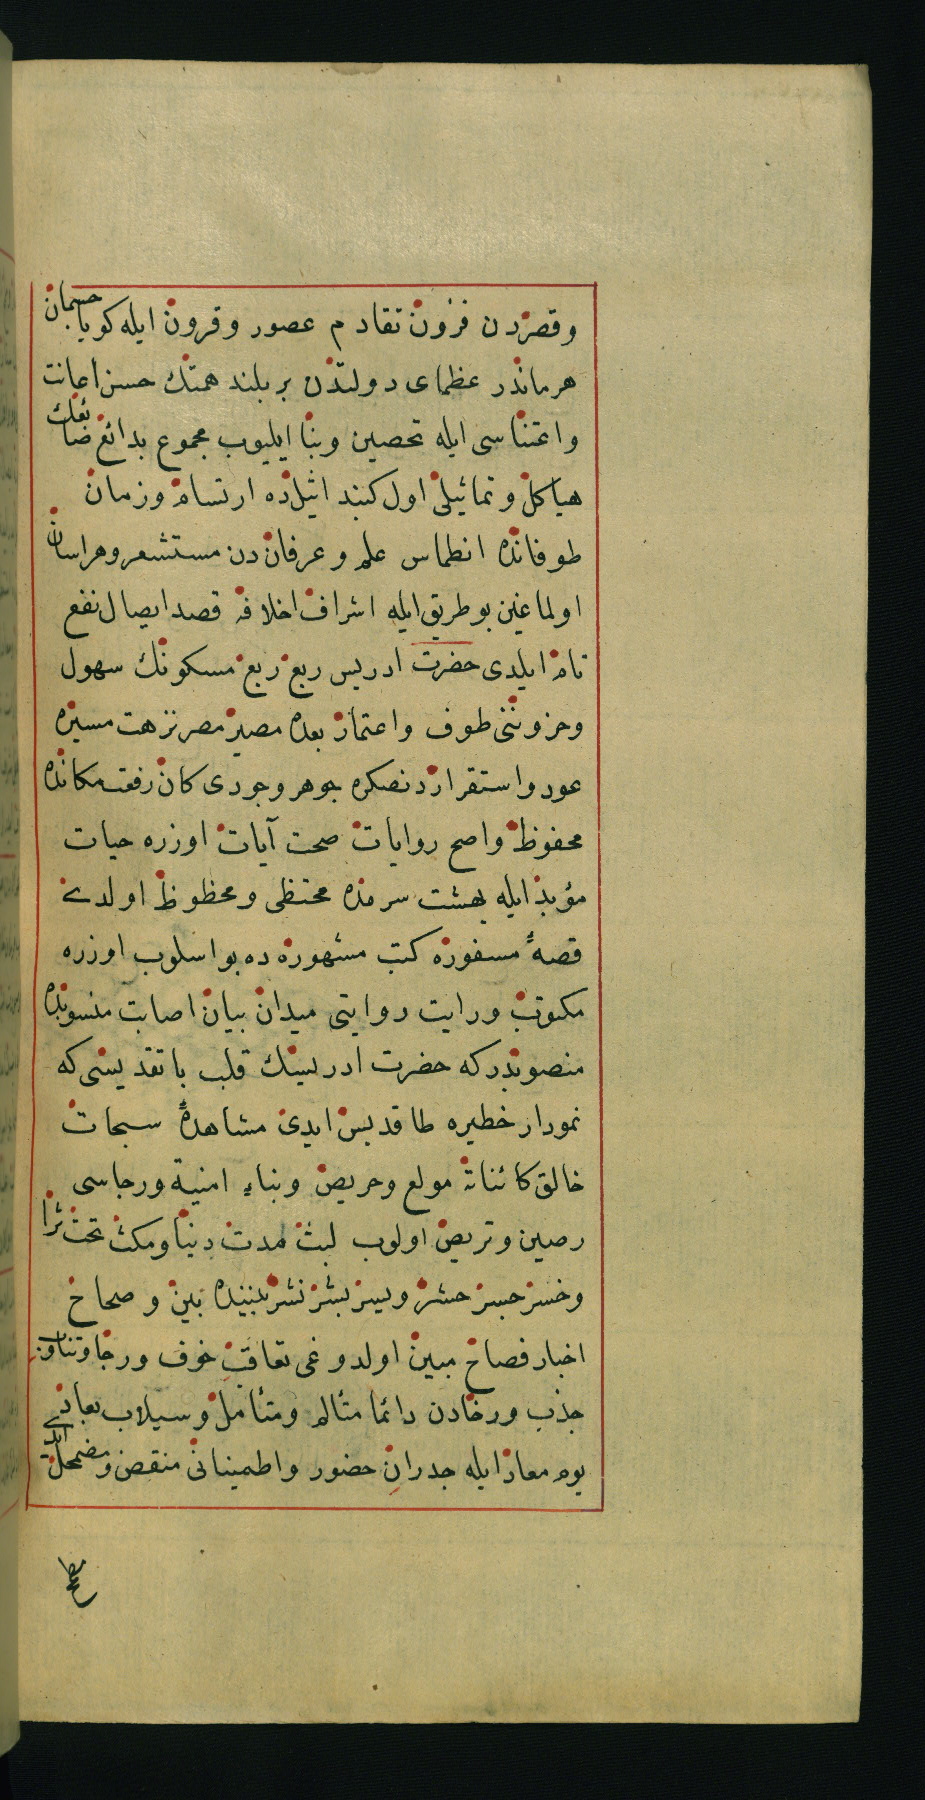 وقصردن فزون تقادم عصور وقرون ايله كويا جسمان
هرماندر عظماى دولتدن بر بلند همتك حسن اعانت
واعتناسى ايله تحصين وبنا ايليوب مجموع بدائع ضائعك
هياكل وتماثيلى اول كنبد اثيلده ارتسام وزمان
طوفانده انطماس علم وعرفاندن مستشعر وهراسان
اولماغين بو طريق ايله اشراف اخلافه قصد ايصال نفع
تام ايلدى حضرت ادريس ربع ربع مسكونك سهول
وحزوننى طوف واعتمار بعده مصير مصر نزهت مسيره
عود واستقراردنصكره جوهر وجودى كان رفعت مكانده
محفوظ واصح روايات صحت آيات اوزره حيات
مؤبد ايله بهشت سرمده محتظى ومحظوظ اولدى
قصهٔ مسفوره كتب مشهوره ده بو اسلوب اوزره
مكتوبدر ورايت روايتى ميدان بيان اصابت منسوبده
منصوبدر كه حضرت ادريسك قلب با تقديسى كه
نمودار خطيره طاقديس ايدى مشاهدهٔ سبحات
خالق كائناته مولع وحريص وبناء امنية ورجاسى
رصين وتريص اولوب لبث مدت دنيا ومكث تحت ثرا
وخسر جسر حشر ويسر بشر نشر بينده بين وصحاح
اخبار فصاح مبين اولدوغى تعاقب خوف ورجا وتناوب
جذب ورخادن دائما متألم ومتأمل وسيلاب
يوم معاد ايله جدران حضور واطمينانى منقض ومضمحل ايدى